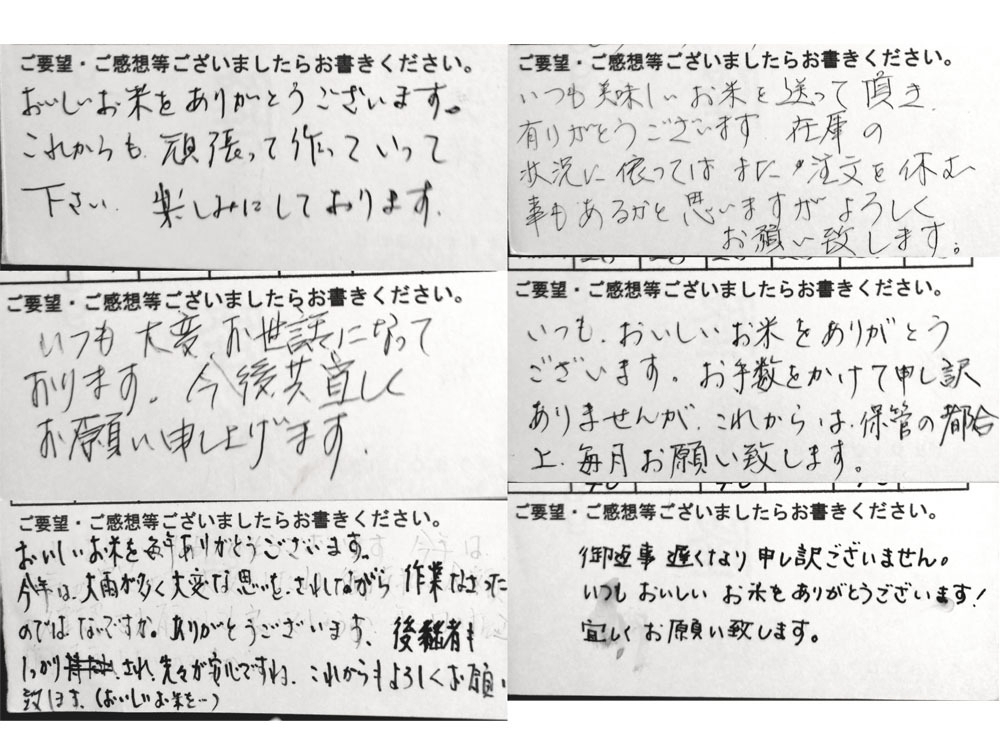 ご要望・ご感想等ございましたらお書きください。
おいしいお米をありがとうございます。
これからも、頑張って作っていって
下さい。楽しみにしております。
ご要望・ご感想等ございましたらお書きください。
いつも美味しいお米を送って頂き、
有りがとうございます 在庫の
状況に依っては また、注文を休む
事もあるかと思いますがよろしく
お願い致します。
ご要望・ご感想等ございましたらお書きください。
いつも大変お世話になって
おります。今後共宜しく
お願い申し上げます.
ご要望・ご感想等ございましたらお書きください。
いつも、おいしいお米をありがとう
ございます。お手数をかけて申し訳
ありませんが、これからは、保管の都合
上、毎月お願い致します。
ご要望・ご感想等ございましたらお書きください。
おいしいお米を毎年ありがとうございます。
今年は、大雨が多く大変な思いを、されしながら 作業なさった
のでは ないですか。ありがとうございます、後継者も
しっかり され、先々が安心ですね、これからもよろしくお願い
致します、(おいしいお米を…)
ご要望・ご感想等ございましたらお書きください。
御返事 遅くなり 申し訳ございません。
いつも おいしい お米をありがとうございます!
宜しくお願い致します。